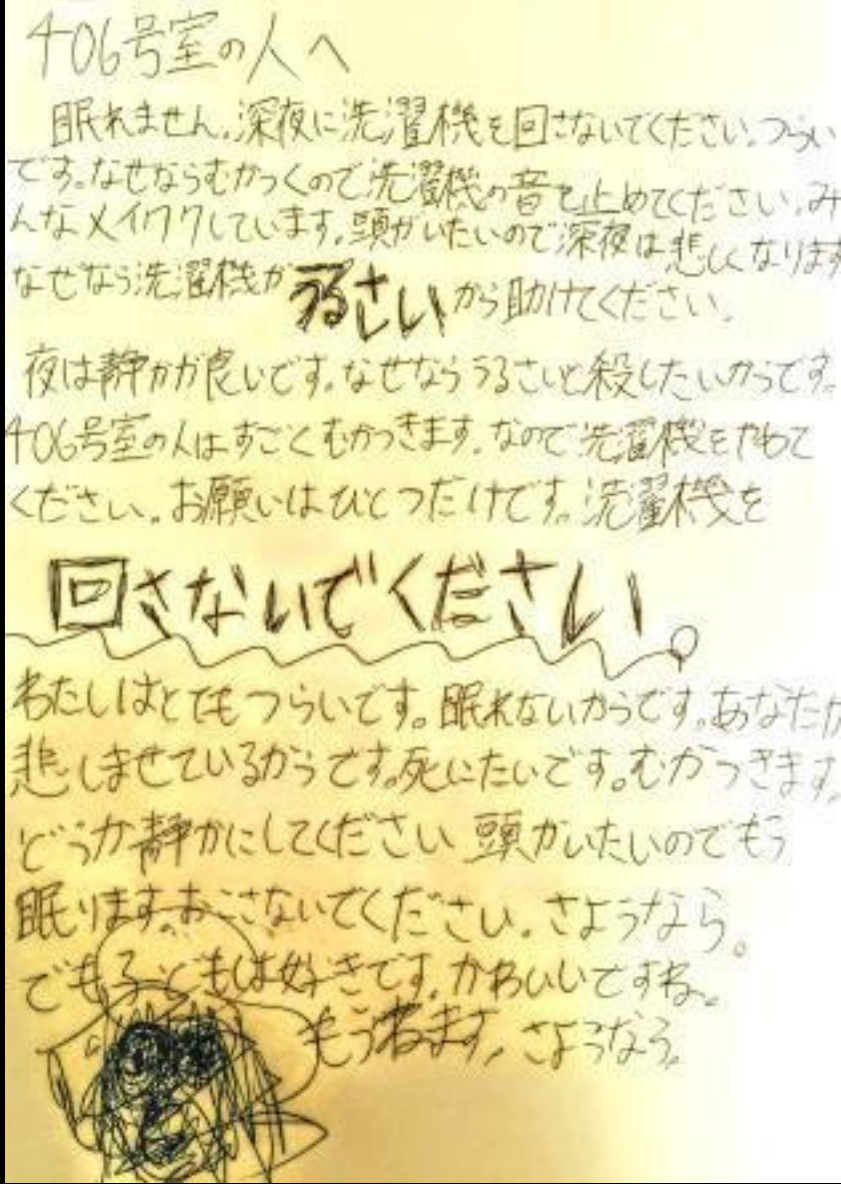 406号室の人へ
眠れません。深夜に洗濯機を回さないでください。つらい
です。なぜならむかつくので洗濯機の音を止めてください。み
んなメイワクしています。頭がいたいので深夜は悲しくなります
なぜなら洗濯機がうるさいから助けてください。
夜は静かが良いです。なぜならうるさいと殺したいからです。
406号室の人はすごくむかつきます。なので洗濯機をやめて
ください。お願いはひとつだけです。洗濯機を
回さないでください。
わたしはとてもつらいです。眠れないからです。あなたが
悲しませているからです。死にたいです。むかつきます。
どうか静かにしてください 頭がいたいのでもう
眠ります。おこさないでください。さようなら。
でも子どもは好きです。かわいいですね。
もうねます。さようなら。